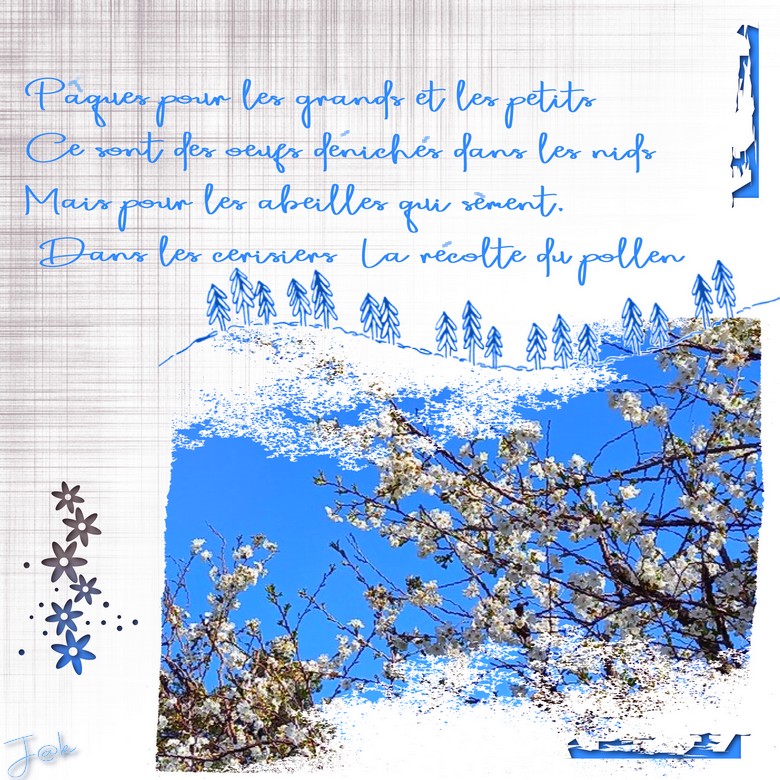 Pâques pour les grands et les petits
Ce sont des oeufs dénichés dans les nids
Mais pour les abeilles qui sèment.
Dans les cerisiers La récolte du pollen
J@k